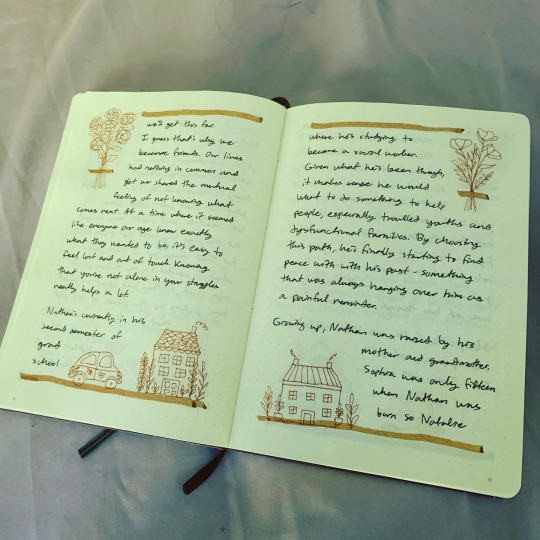 we'd get this far.
I guess that's why we
became friends. Our lives
had nothing in common and
yet we shared the mutual
feeling of not knowing what
comes next. At a time where it seemed
like everyone our age knew exactly
what they wanted to be, it's easy to
feel lost and out of touch. Knowing
that you're not alone in your struggles
really helps a lot.
Nathan's currently in his
second semester of
grad
school
where he's studying to
become a social worker.
Given what he's been through,
it makes sense he would
want to do something to help
people, especially troubled youths and
dysfunctional families. By choosing
this path, he's finally starting to find
peace with with his past - something
that was always hanging over him as
a painful reminder.
Growing up, Nathan was raised by his
mother and grandmother.
Sophia was only fifteen
when Nathan was
born so Natalie